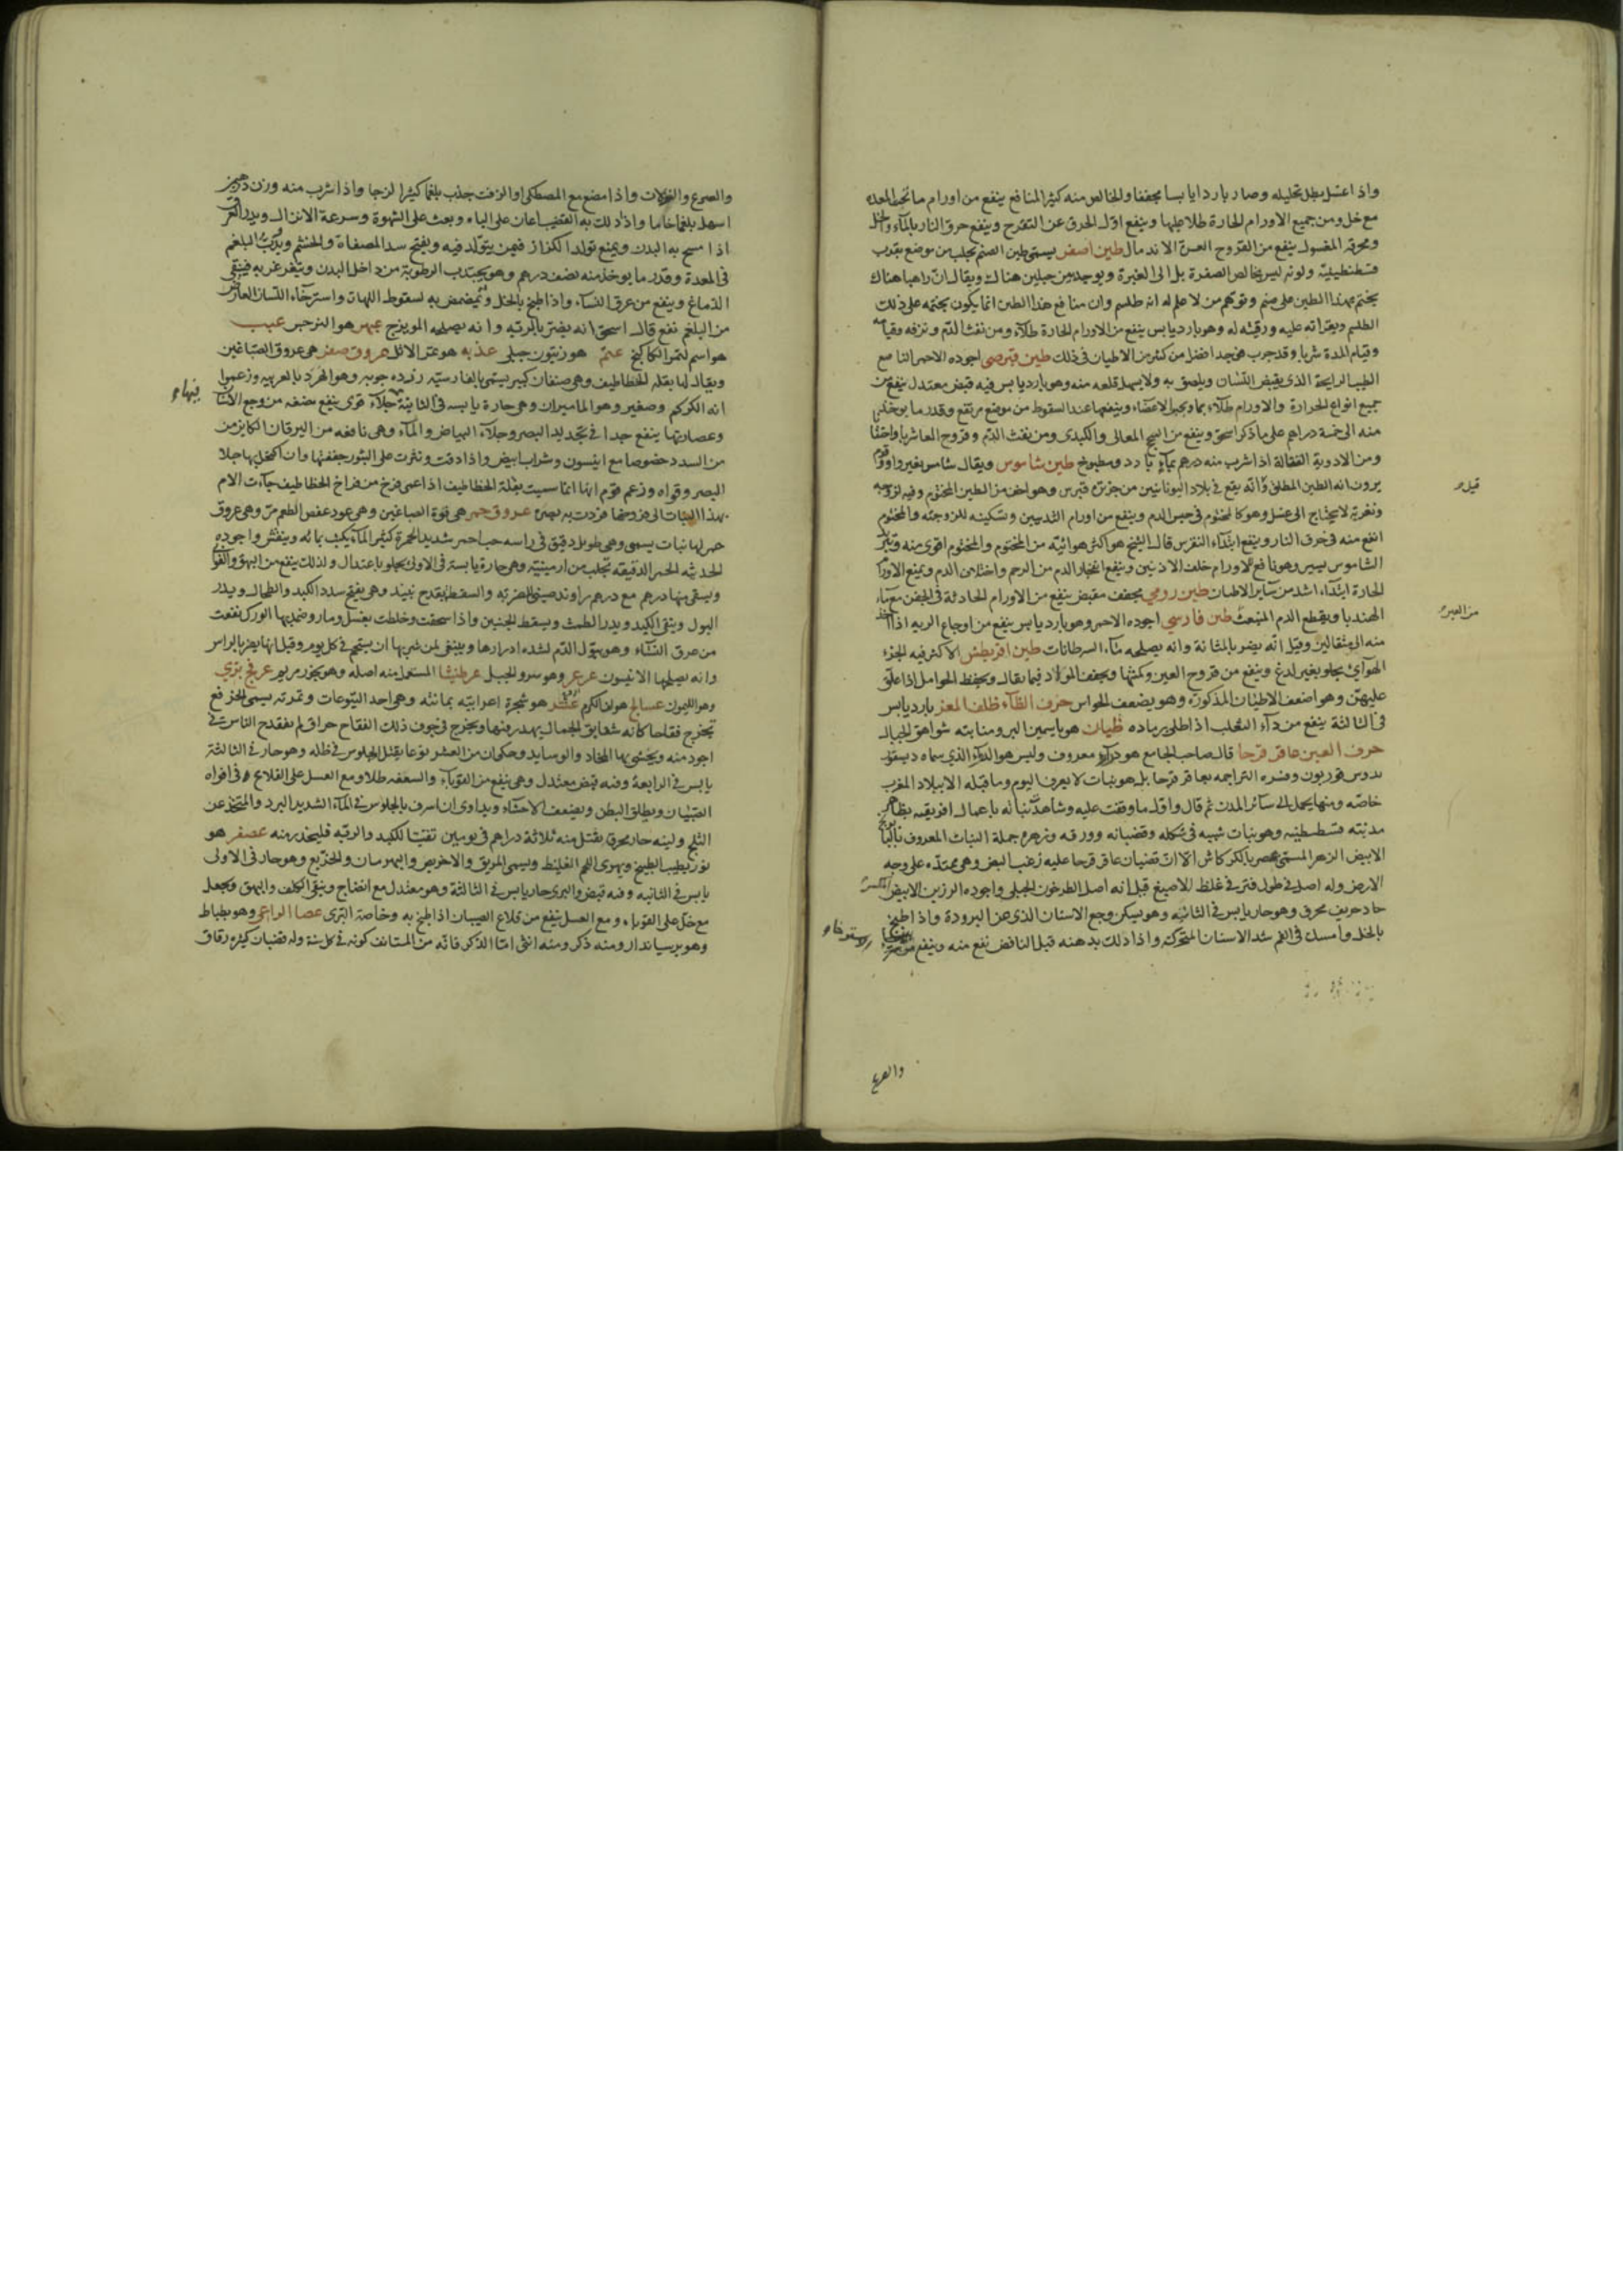 واذا غسل بطل تحليله وصار باردا يابسا مجففا والخالص منه كثير المنافع ينفع من اورام ما تحت المعده
مع خل ومن جميع الاورام الحارة طلا عليها وينفع اول الحرق عن التقرح وينفع حرق النار بالماء والخل
ومحرقه المغسول ينفع من القروح العسرة الاندمال طين اصفر يسمى طين الصنم يجلب من موضع بقرب
قسطنطينية ولونه ليس بخالص الصفرة بل الى الغبرة ويوجد بين جبلين هناك ويقال ان راهبا هناك
يختم بهذا الطين على صنم وتوهم من لا علم له انه طلسم وان منافع هذا الطين انما يكون بختمه على ذلك
الطلسم وبقراته عليه ورقيته له وهو بارد يابس ينفع من الاورام الحارة طلاء ومن نفث الدم ونزفه وقيامه
وقيام المدة شربا وقد جرب هى جدا افضل من كثير من الاطيان فى ذلك طين قبرصى اجوده الاحمر الناصع
الطيب الرايحة الذى يقبض اللسان ويلصق به ولا يسهل قلعه منه وهو بارد يابس فيه قبض معتدل ينفع من
جميع انواع الحرارة والاورام طلاء بماء ويجبر الاعضاء وينفعها عند السقوط من موضع مرتفع وقدر ما يوخذ
منه الى خمسة دراهم على ما ذكر اسحق وينفع من السحج المعائى والكبدى ومن نفث الدم وقروح المعا شربا واحتقانا
ومن الادوية القتالة اذا شرب منه درهم بماء بارد ومطبوخ طين شاموس ويقال شاموس بغير واو وقوم
يرون انه الطين المطلق وانه يقع فى بلاد اليونانيين من جزيرة قبرس وهو اخف من الطين المختوم وفيه لزوجه
وتغرية لا يحتاج الى غسل وهو كالمختوم فى حبس الدم وينفع من اورام الثديين وتسكينه للزوجته والمختوم
انفع منه فى حرق النار وينفع ابتداء النقرس قال الشيخ هو اكثر هوائية من المختوم والمختوم اقوى منه
الشاموس يسير وهو نافع للاورام خلف الاذنين وينفع انفجار الدم من الرحم واختلاف الدم ويمنع الاورام
الحارة ابتداء اشد من ساير الاطيان طين رومى مجفف مقبض ينفع من الاورام الحادثة فى الجفن مع ماء
الهندبا ويقطع الدم المنبعث طين فارسي اجوده الاحمر وهو بارد يابس ينفع من اوجاع الريه اذا اخذ
منه الى مثقالين وقيل انه يضر بالمثانة وانه يصلحه ماء السرطانات طين اقريطش الاكثر فيه الجزء
الهوائى يجلو بغير لدغ وينفع من قروح العين وكمنتها ويخفف الولاد فيما يقال ويحفظ الحوامل اذا علق
عليهن وهو اضعف الاطيان المذكورة وهو يضعف الحواس حرف الظاء ظلف المعز بارد يابس
فى الثالثة ينفع من داء الثعلب اذا طلى برماده ظيان هو ياسمين البر ومنابته شواهق الجبال
حرف العين عاقر قرحا قال صاحب الجامع هو دواء معروف وليس هو الدواء الذي سماه ديسقو
ريدوس فوريون وفسره التراجمه بعاقر قرحا بل هو نبات لا يعرف اليوم وما قبله الا ببلاد المغرب
خاصه ومنها يحمل الى سائر المدن ثم قال واول ما وقفت عليه وشاهدت نباته باعمال افريقيه بظاهر
مدينته قسطنطينه وهو نبات شبيه فى شكله وقضبانه وورقه وزهره جملة النبات المعروف بالبابونج
الابيض الزهر المسمى بمصر بالكركاش الا ان قضبان عاقر قرحا عليه زغب ابيض وهى ممتدة على وجه
الارض وله اصل فى طول فتر فى غلظ الاصبع قيل انه اصل الطرخون الجبلى واجوده الرزين الابيض المكسر
حاد حريف محرق وهو حار يابس فى الثانيه وهو يسكن وجع الاسنان الذى من البرودة واذا طبخ
بالخل وامسك فى الفم شد الاسنان المتحركه واذا دلك بدهنه قبل النافض نفع منه وينفع
والصرع
قيل
من العين
والصرع والنزلات واذا مضغ مع المصطكى او الزفت جذب بلغما كثيرا لزجا واذا شرب منه وزن درهمين
اسهل بلغما خاما واذا دلك به القضيب اعان على الباء وبعث على الشهوة وسرعة الانزال ويدر العرق
اذا مسح به البدن ويمنع تولد الكزاز فيمن يتولد فيه ويفتح سدد المصفاة والخشم ويذيب البلغم
فى المعدة وقدر ما يوخذ منه نصف درهم وهو يجذب الرطوبة من داخل البدن ويتغرغر به فينقى
الدماغ وينفع من عرق النساء واذا طبخ بالخل وتمضمض به لسقوط اللهات واسترخاء اللسان العارض
من البلغم نفع قال اسحق انه يضر بالريه وانه يصلحه المويزج عبهر هو النرجس عبب
هو اسم لثمر الكاكنج عتم هو زيتون جبلى عذبه هو ثمر الاثل عروق صفر هى عروق الصباغين
ويقال لها بقله الخطاطيف وهى صنفان كبير يسمى بالفارسيه زرده جوبه وهو الهرد بالعربيه وزعموا
انه الكركم وصغير وهو الماميران وهى حارة يابسه فى الثانية جلاء قوى ينفع مضغه من وجع الاسنان
وعصارتها ينفع جدا فى تحديد البصر وجلاء البياض والماء وهى نافعه من اليرقان الكاين من
من السدد خصوصا مع انيسون وشراب ابيض واذا دقت ونثرت على البثور جففتها وان اكتحل بها جلا
البصر وقواه وزعم قوم انها انما سميت بقلة الخطاطيف اذا عمى فرخ من فراخ الخطاطيف جاءت الام
بهذا النبات الى فرخها فردت به بصره عروق حمر هى فوة الصباغين وهى عود عفص الطعم مر وهى عروق
حمر لها نبات يسمو وهى طويل دقيق فى راسه حب احمر شديد الحمرة كثير الماء يكتب بمائه وينقش واجوده
الحديثه الحمر الدقيقه تجلب من ارمينيه وهى حارة يابسة فى الاولى يجلو باعتدال ولذلك ينفع من البهق والقوبا
ويسقى منها درهم مع درهم راوند صينى للضربه والسقطه بقدح نبيذ وهى يفتح سدد الكبد والطحال ويدر
البول وينقى الكبد ويدر الطمث ويسقط الجنين واذا سحقت وخلطت بعسل وماء وضمد بها الورك نفعت
من عرق النساء وهو يبول الدم لشده ادرارها وينبغى لمن شربها ان يستحم فى كل يوم وقيل انها يضر بالراس
وانه يصلحها الانيسون عرعر وهو سرو الجبل عرطنيثا المستعمل منه اصله وهو بخور مريم عرفج برى
وهو الليمون عساليج هو لف الكرم عشر هو شجرة اعرابيه يمانيه وهى احد اليتوعات وثمرته يسمى الخرفع
يخرج فقاحا كانه شقايق الجمال يهدر فيها ويخرج فى جوف ذلك الفقاح حراق لم يقتدح الناس فى
اجود منه ويحشى بها المخاد والوسايد وحكى ان من العشر نوعا يقتل الجلوس فى ظله وهو حار فى الثالثة
يابس فى الرابعة وفيه قبض معتدل وهى ينفع من القوباء والسعفه طلاء ومع العسل على القلاع فى افواه
الصبيان ويطلق البطن ويضعف الاحشاء ويداوى ان اسرف بالجلوس فى الماء الشديد البرد والمتخذ عن
الثلج ولبنه حار محرق يقتل منه ثلاثة دراهم فى يومين تفتيتا للكبد والريه فليحذر منه عصفر هو
نور يطيب الطبيخ ويهرى اللحم الغليظ ويسمى المريق والاخريض والبهرمان والخريع وهو حار فى الاولى
يابس فى الثانيه وفيه قبض والبرى حار يابس فى الثالثة وهو معتدل مع انضاج وينقى الكلف والبهق ويجعل
مع خل على القوباء ومع العسل ينفع من قلاع الصبيان اذا طبخ به وخاصة البرى عصا الراعى وهو بطباط
وهو برسياندارو منه ذكر ومنه انثى اما الذكر فانه من المستانف كونه فى كل سنة وله قضبان كثيرة رقاق